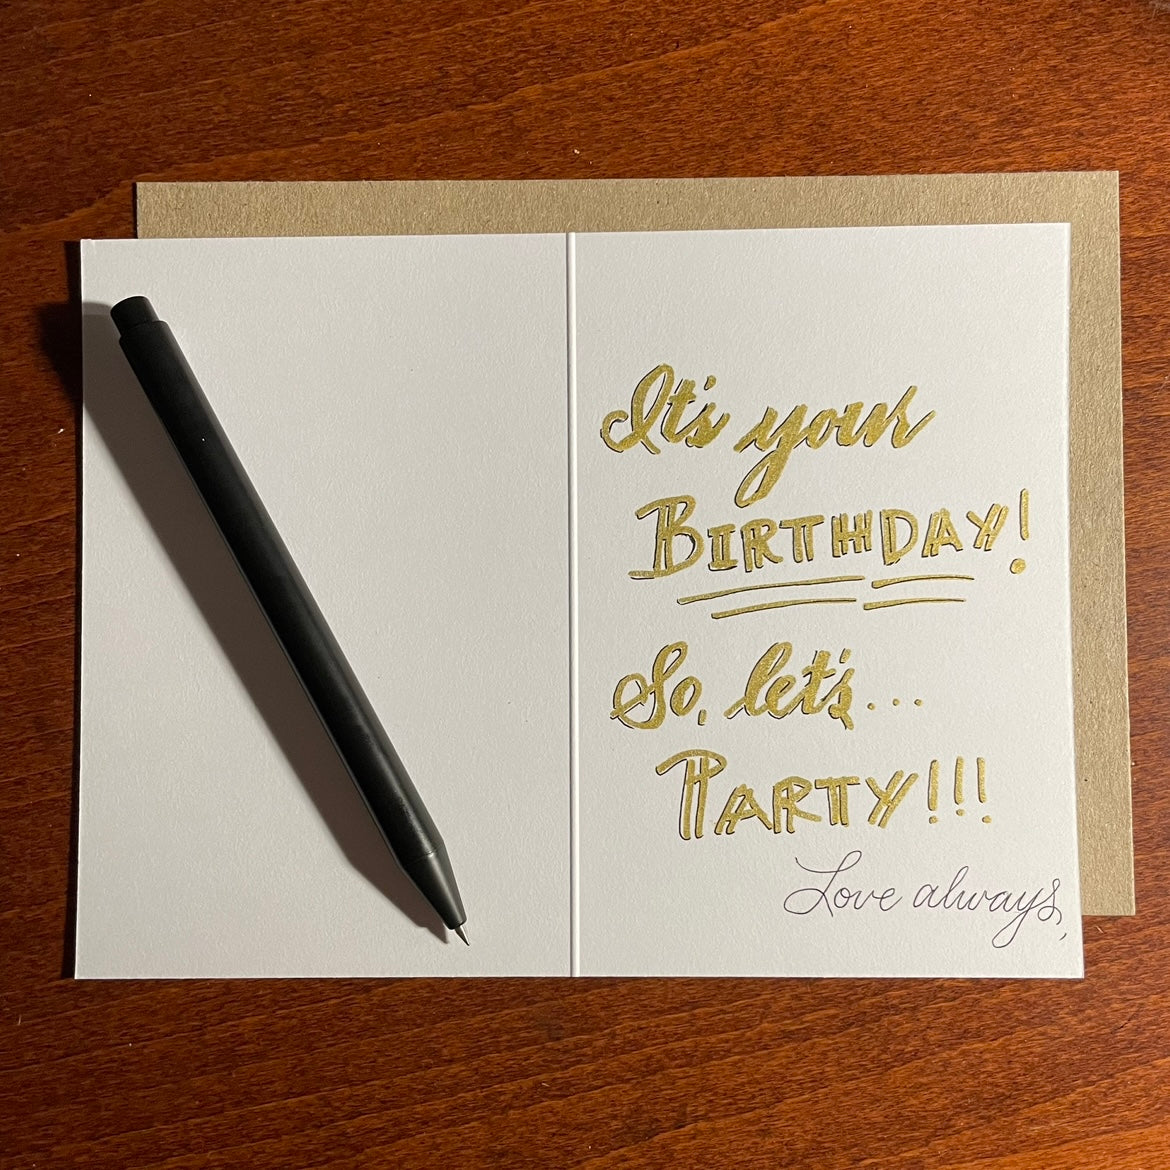 It's your
BIRTHDAY!
So, let's...
PARTY!!!
Love always,